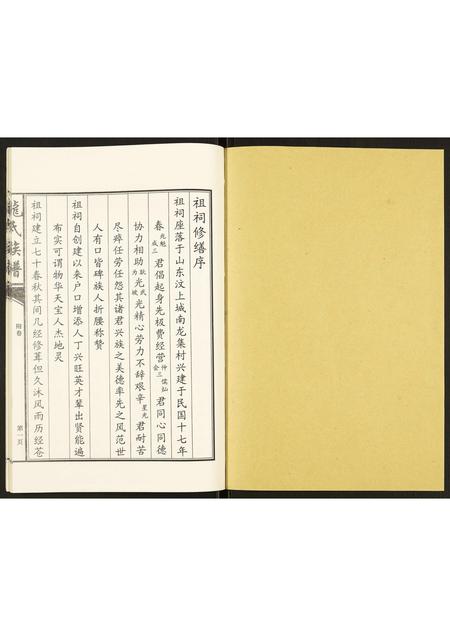 祖祠修缮序
祖祠座落于山东汶上城南龙集村兴建于民国十七年
春光魁成三君倡起身先极费经营仲三儒灿会君同心同德
协力相助耿武为坡光光精心劳力不辞艰辛星光君耐苦
尽瘁任劳任怨其诸君兴族之美德率先之风范世
人有口皆碑族人折腰称赞
祖祠自创建以来户口增添人丁兴旺英才辈出贤能遍
布实可谓物华天宝人杰地灵
祖祠建立七十春秋其间几经修葺但久沐风雨历经苍
龙氏族谱
附卷
第一页